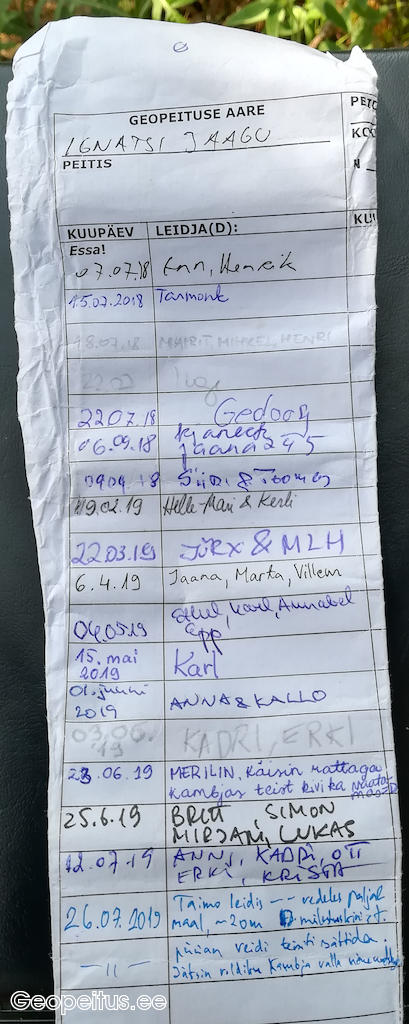 GEOPEITUSE AARE
IGNATSI JAAGU
PEITIS
KUUPÄEV LEIDJA(D):
Essa!
07.07.18 Enn, Henrik
15.07.2018 Tarmonk
18.07.18 MAIRIT, MIHKEL, HENRI
22.07
22.07.18 Gedoog
06.09.18
jaana245
Siiri & Toomas
19.02.19 Helle-Mari & Kerli
22.03.19 JÜRX & MLH
6.4.19 Jaana, Marta, Villem
04.05.19 Karl, Annabel
äpp
15. mai
2019 Karl
01. juuni
2019 ANNA & KALLO
03.06.
19 KADRI, ERKI
23.06.19 MERILIN, Käisin rattaga
Kambjas teist kivi ka
25.6.19 BRITT, SIMON
MIRJAM, LUKAS
12.07.19 ANNI, KADRI, OTT
ERKI, KRISTA
26.07.2019 Taimo leidis -- vedeles paljal
maal, ~20m mälestuskivist.
-11- püüan veidi
Jätsin Kambja valla
Geopeitus.ee